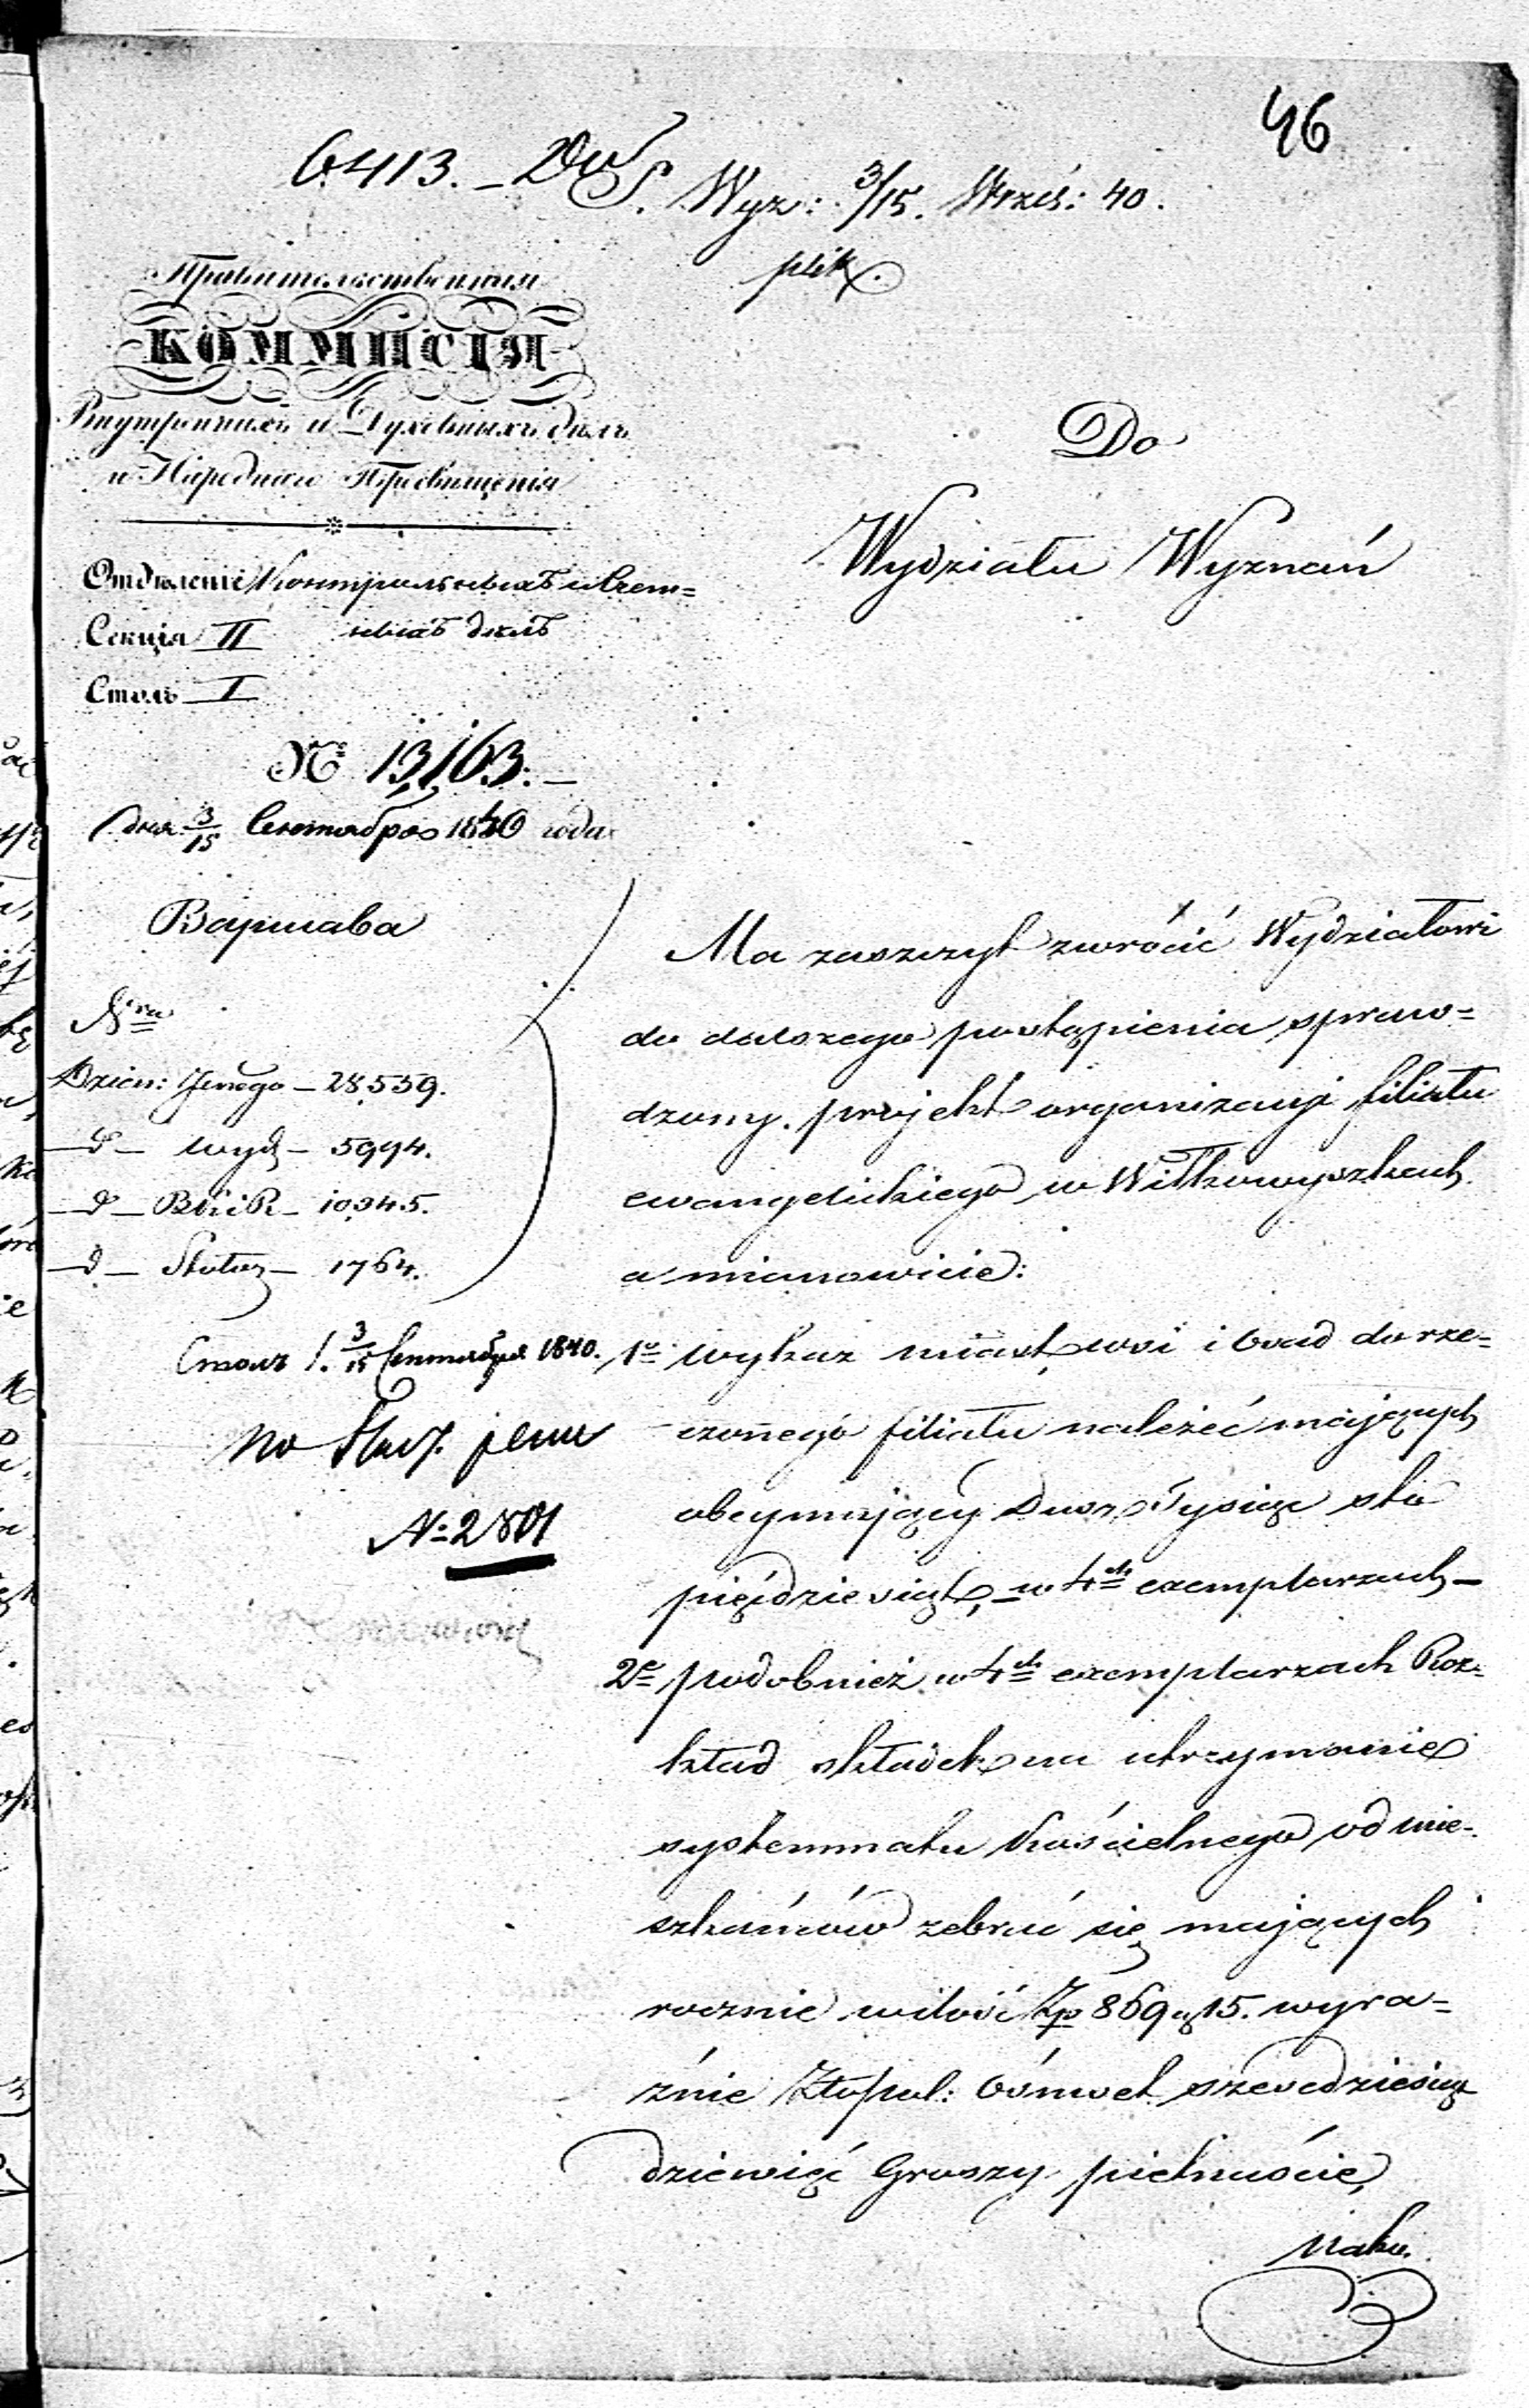 46
6413. – DWS. Wyz: 3/15. Wrześ: 40.
plik.
Правительственная
КОММИСІЯ
Внутреннихъ и Духовныхъ дѣлъ
и Народнаго Просвѣщенія
Отдѣленіе Контрольныхъ и Счет=
Секція II ныхъ дѣлъ
Столъ I
№ 13,163:–
дня 3/15 Сентября 1840 года
Варшава
Do
Wydziału Wyznań
Nra
Dzien: Jenego – 28,559.
– d – wyd – 5994.
– d – – 10345.
– d – – 1764.
3/15 Сентября 1840.
No
N: 2801
Ma zaszczyt zwrócić Wydziałowi
do dalszego postąpienia spraw=
dzony projekt organizacyi filiału
ewangelickiego w Wiłkowyszkach
a mianowicie:
1o wykaz miast, wsi i osad do rze=
czonego filiału należeć mających
obeymujący Dusz Tysiąc sto
pięćdziesiąt, – w 4ch exemplarzach –
2e podobnież w 4ch exemplarzach Roz=
kład składek na utrzymanie
systemmatu Kościelnego od mie=
szkańców zebrać się mających
rocznie w ilości Zp 869 g 15. wyra=
źnie Złopol: Ośmset sześćdziesiąt
dziewięć Groszy pietnaście,
Nako.